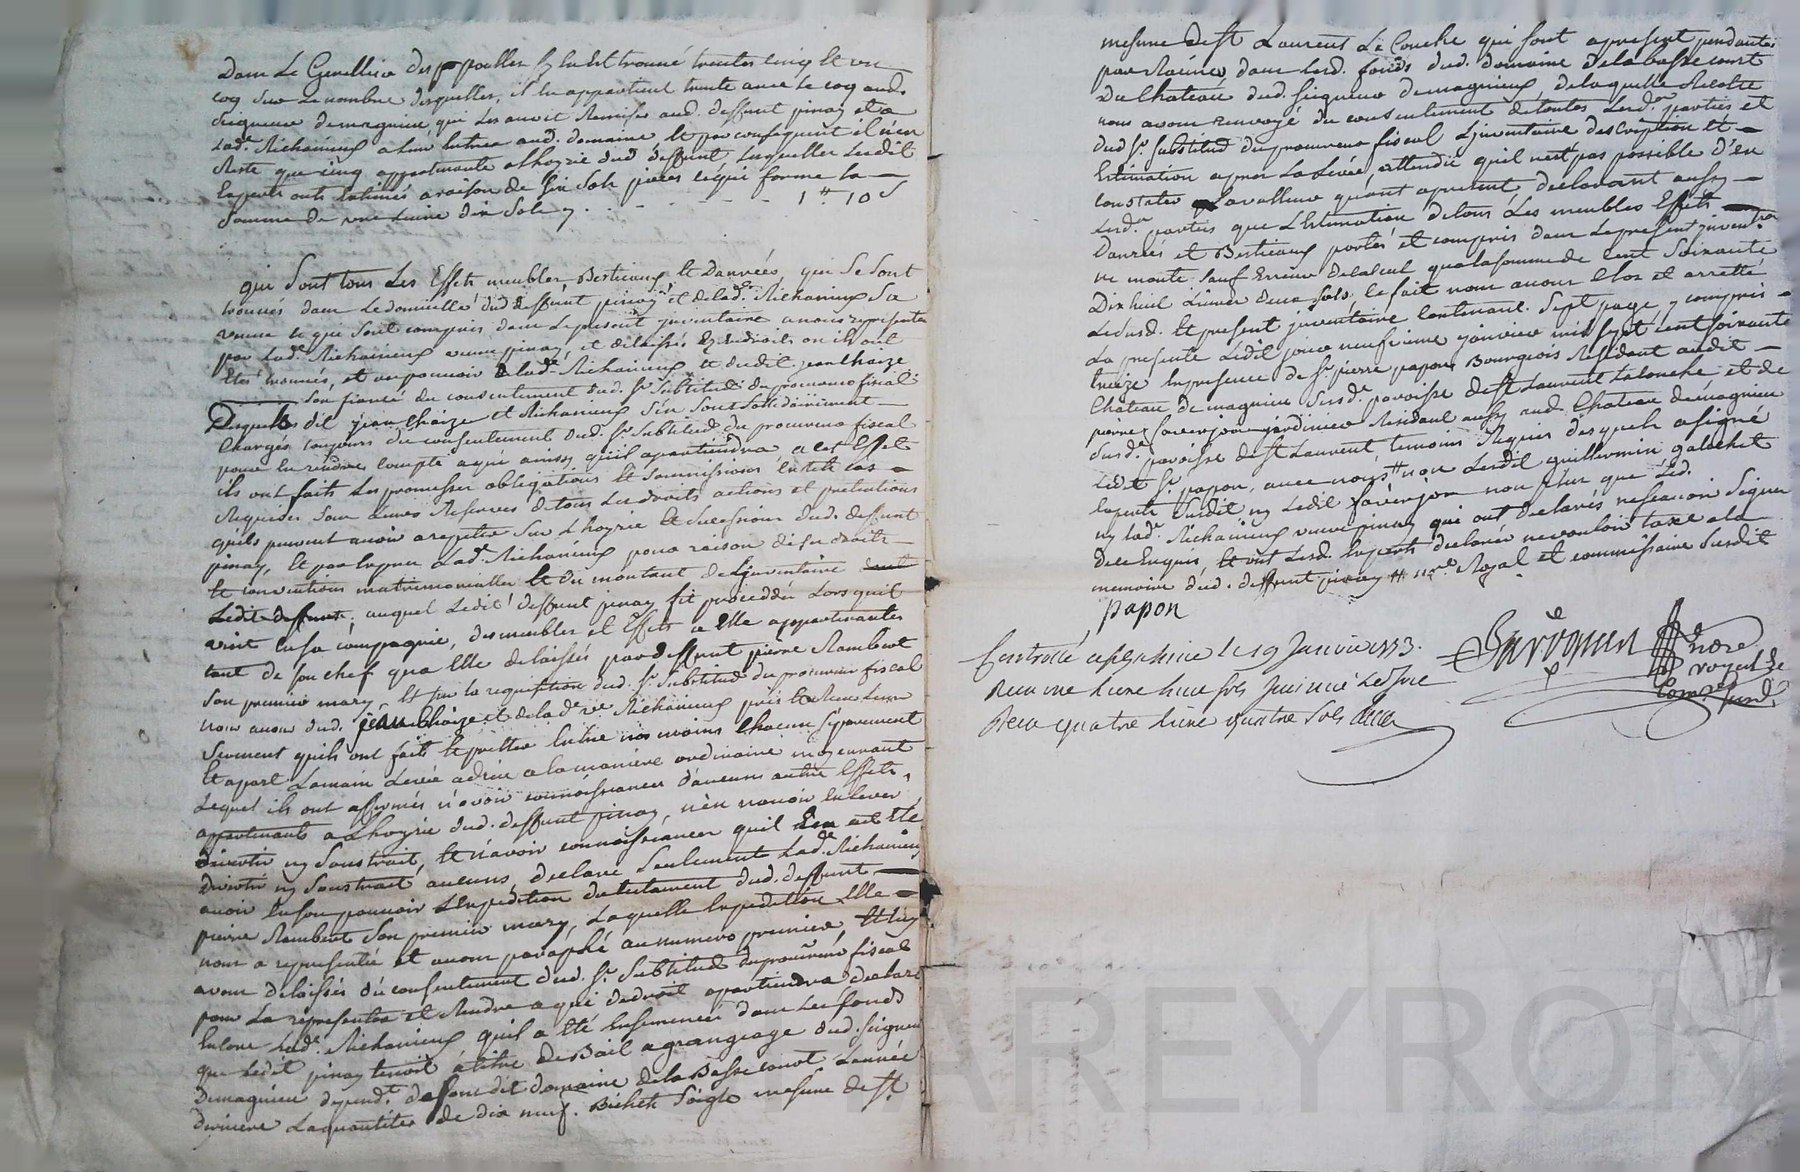 Dans Le Genellier des poulles sy Est trouvé trentes cinq et un
coq sur Le nombre desquelles, il en appartient trente avec le coq aud.
seigneur demagnieu, qui Les avoit Remises aud. deffunt pinay et a
Lad. Richanieux a Leur Entrée aud. domaine Et par consequent il n'en
Reste que cinq appartenante a lhoyrie dud deffunt, Lesquelles Lesdit
Experts ont Estimés a raison de six sols pieces ce qui forme la
somme de une Livre dix sols 1 ⁠# 10 s
qui Sont tous Les Effets meubles Bestieaux Et Danrées, qui se sont
trouvés dans Le domicille dud deffunt pinay et de lad. Richanieux sa
veuve ce qui sont compris dans Le present juventaire a nous representés
par Lad. Richanieux veuve pinay, et delaissés Es Endroits ou ils ont
Etés trouvés, et au pouvoir de lad. Richanieux Et dudit jean Chaize
son fiancé du consentement dud. Sr. Substitud du procureur fiscal
Desquels dit jean Chaize et Richanieux s'en sont solidairement
Chargés toujours du consentement dud. Sr. Substitud du procureur fiscal
pour En rendre compte a qui ainsy quil apartiendra a cet Effet
ils ont faits Les promesses obligations Et soumissions En tels cas
Requises sous Leurs Reserves de tous Les droits actions et pretentions
quels peuvent avoir a repeter sur Lhoyrie Et succession dud. deffunt
pinay, Et par Expres Lad. Richanieux pour raison de ses droits
Et conventions matrimonialles Et du montant de Ljnventaire
Ledit deffunt, auquel Ledit deffunt pinay fit proceder Lorsquil
vint En sa compagnie, des meubles et Effets a Elle appartenantes
tant de son chef qua Elle delaissés par deffunt pierre Rambert
son premier mary, Et sur la requisition dud. Sr. Substitud du procureur fiscal
nous avons dud. jean Chaize et de lad. ve Richanieux pris Et Receu Leur
serment quils ont faits Et prettes Entre nos mains chacun separement
Et apart Lamain Levée a dieu a la maniere ordinaire moyennant
Lequel ils ont affirmés n'avoir connoissances d'aucuns autre Effets,
appartenants a Lhoyrie dud. deffunt pinay, n'en n'avoir Enlever
divertir ny soustrait, Et n'avoir connoissances quil En ait Eté
divertir ny soustrait aucuns, declare seulement Lad. Richanieux
avoir En son pouvoir Lexpedition du testament dud. deffunt
pierre Rambert son premier mary, Laquelle Expedition Elle
nous a representée et avons paraphé au numero premier, Et luy
avons delaissés du consentement dud. Sr. Substitud du procureur fiscal
pour La representer et Rendre a qui de droit apartiendra declare
Encore Lad. Richanieux quil a Eté Ensemencés dans Les fonds
que Ledit pinay tenoit a titre de Bail a grangeage dud. seigneur
Demagnieu depend.t de son dit domaine de la Basse court Lannée
derniere La quantités de dix neuf Bichets seigle mesure de St.
mesure de St Laurens La Conche qui sont apresent pendantes
par Racines dans Lesd. fonds dud. domaine de la basse court
Du Chateau dud. seigneur demagnieu, de laquelle Recolte
nous avons renvoyé du consentement de toutes Lesd. parties et
dud Sr. substitud du procureur fiscal Ljnventaire description Et
Estimation apres La Levée, attendu quil n'est pas possible d'en
constater La valleur quant apresent, declarant aussy
Lesd. parties que LEstimation de tous Les meubles Effets
Danrées et Bestieaux portés et compris dans Le present jnventre
ne monte sauf Erreur de calcul qua la somme de cent soixante
Dix huit Livres deux sols. Ce fait nous avons Clos et arretté
Le susd. Et present juventaire Contenant sept page, y compris
La presente Ledit jour neufvieme janvier mil sept cent soixante
treize En presence de Sr. pierre papon Bourgeois Residant audit
Chateau de magnieu susd. paroisse de St Laurent La Conche et de
pierre jardinier Residant aussy aud. Chateau demagnieu
susd. paroisse de St Laurent, temoins Requis desquels a signé
Ledt Sr. papon, avec nous non Lesdit guillermin galochet
Experts susdit ny Ledit non plus que Led.
ny Lad. Richanieux veuve pinay qui ont declarés ne scavoir signer
De ce Enquis, Et ont Lesd. Experts declarés ne vouloir taxe a la
memoire dud. deffunt pinay nre. Royal et commissaire susdit
papon
Controllé a le 19 Janvier 1773.
Receu une Livre
Receu quatre Livre quatre sols
nore
royal &
Comre
susd.
AREYRON